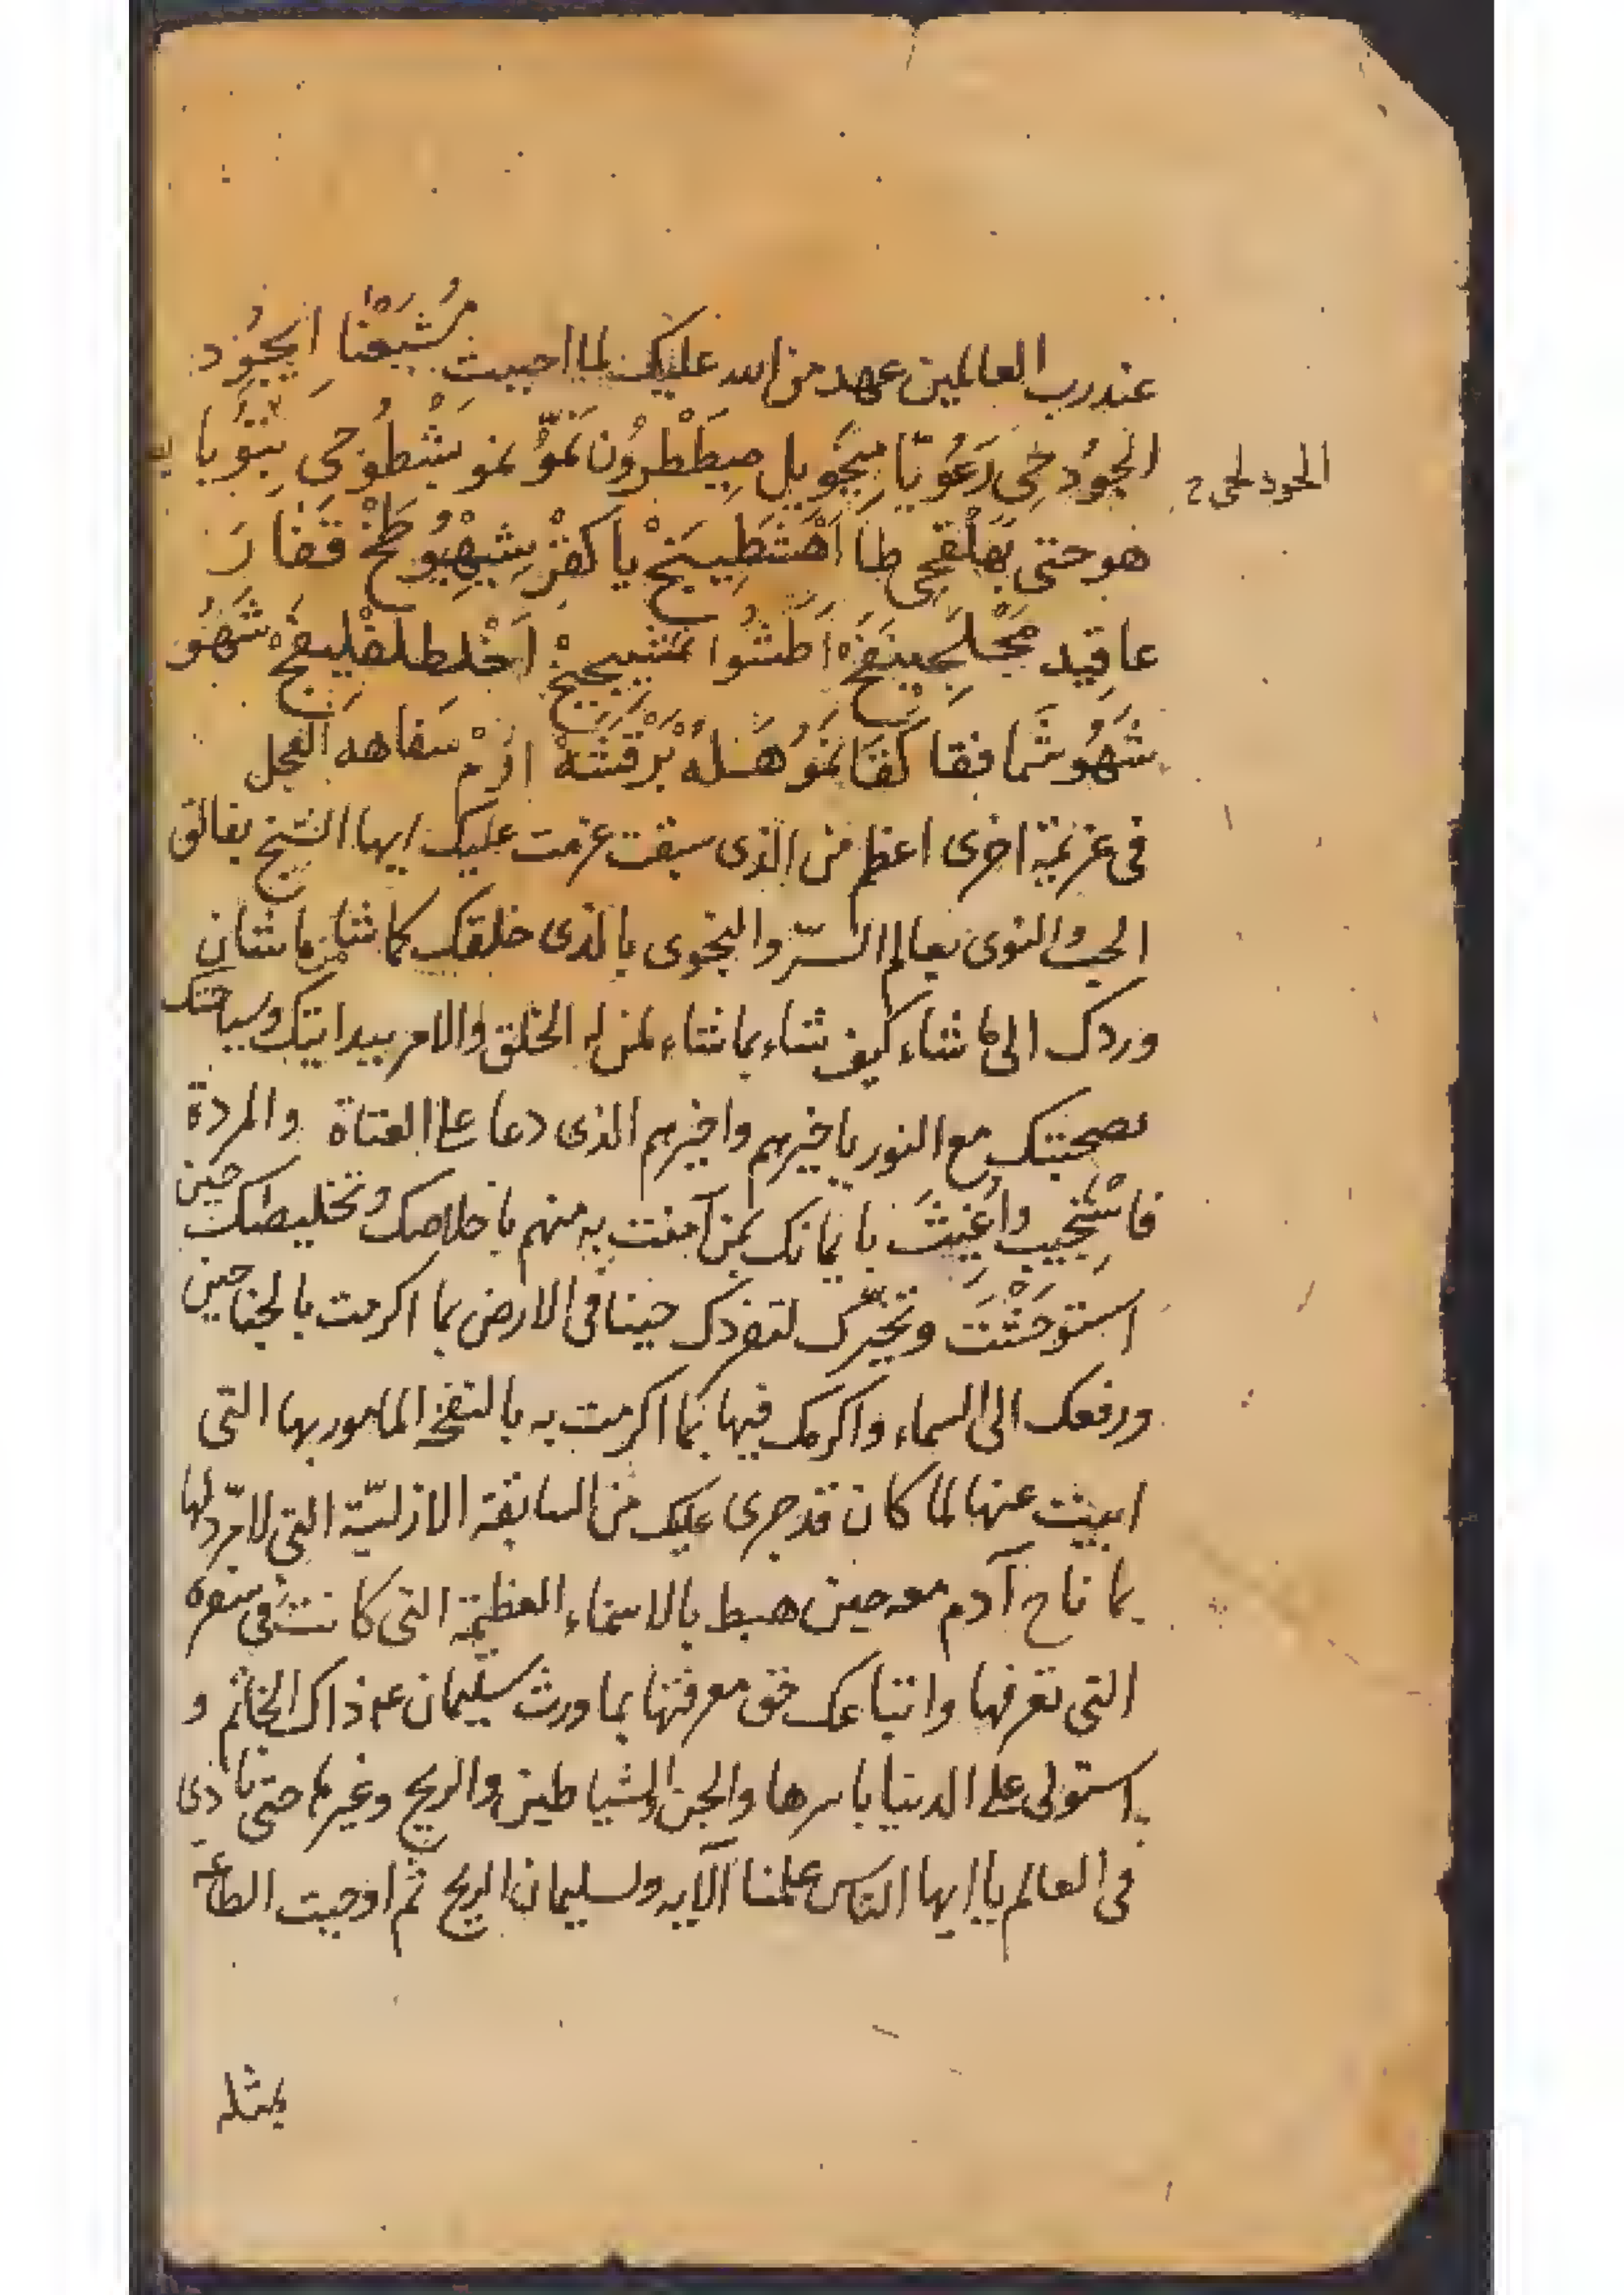 عند رب العالمين عهد من الله عليك لما اجبيت مُشَبَعْنَا ايَجُود
الجود لحى ٢
الجوُد حِى رَعُوتًا مِيجَويل صِيطَطْرُون نَموُّ نمو بَشْطُوحى
هو حتى بَهَلْقَحِى طا اَهَشَطِيبَخْ يا كفز بِشِيهْيُوطَخْ قفَارَ
عاقِيد اَطَشُوا شَهَوُ
شَهَوُ شَما فقا كَفَا نَمَوُ هَسْلَهُ بَرْقَشَهْ ازمْ سَفاهه العجل
فى عزيمة اخرى اعظم من الذى سبقت عزمت عليك ايها الشيخ بفالق
الحب والنوى بعالم السرّ والنجوى بالذى خلقك كما شا من ما شا ن
وردك الى ما شاء كيف شاء بما شاء لمن له الخلق والامر ببدايتك وسياحتك
بصحبتك مع النور ياخيرهم واخيرهم الذى دعا على العتاة والمردة
فاسْتُجِيب واُغِيثَ بايمانك بمن آمنت به منهم باخلاصك وتخليصك حين
استوحَشْتَ وتحيّرك لتفردك حينا فى الارض بما اكرمت بالجناحين
ورفعك الى السماء واكرمك فيها بما اكرمت به بالنفخة المامور بها التى
ابيت عنها لما كان قد جرى عليك من السابقة الازليّة التى لا مردّ لها
بما ناح آدم معه حين هبط بالاسماء العظيمة التى كانت فى سفره
التى تعرفها واتباعك حق معرفتها بما ورث سليمان عم ذاك الخاتم و
استولى على الدنيا باسرها والجن والشياطين والريح وغيرها حتى نادى
فى العالم يا ايها الناس علمنا الآيه ولسليمان الريح ثم اوجبت الطاعة
بمثله